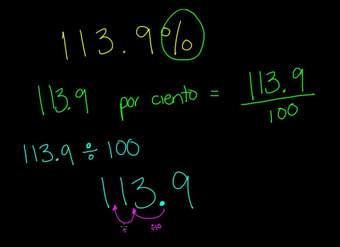 113.9%
113.9 por ciento = 113.9/100
113.9 ÷ 100
113.9
÷10